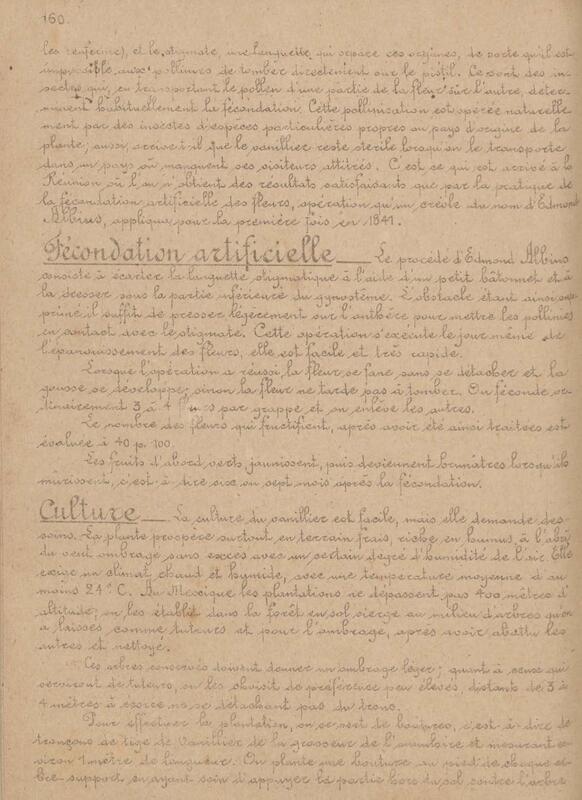 160.
les renferme), et le stigmate, une languette qui sépare ces organes, de sorte qu'il est
impossible aux pollinies de tomber directement sur le pistil. Ce sont des in-
sectes qui, en transportant le pollen d'une partie de la fleur sur l'autre, déter-
minent habituellement la fécondation. Cette pollinisation est opérée naturelle
ment par des insectes d'espèces particulières propres au pays d'origine de la
plante; aussi arrive-t-il que le vanillier reste stérile lorsqu'on le transporte
dans un pays où manquent ces visiteurs attitrés. C'est ce qui est arrivé à la
Réunion où l'on n'obtient des résultats satisfaisants que par la pratique de
la fécondation artificielle des fleurs, opération qu'un créole du nom d'Edmond
Albius, appliqua pour la première fois en 1841.
Fécondation artificielle _ Le procédé d'Edmond Albius
consiste à écarter la languette stigmatique à l'aide d'un petit bâtonnet et à
la dresser sous la partie inférieure du gynostème. L'obstacle étant ainsi sup
primé il suffit de presser légèrement sur l'anthère pour mettre les pollinies
en contact avec le stigmate. Cette opération s'exécute le jour même de
l'épanouissement des fleurs, elle est facile et très rapide.
Lorsque l'opération a réussi la fleur se fane sans se détacher et la
gousse se développe; sinon la fleur ne tarde pas à tomber. On féconde or-
dinairement 3 à 4 fleurs par grappe et on enlève les autres.
Le nombre des fleurs qui fructifient, après avoir été ainsi traitées est
évaluée à 40 p. 100.
Les fruits d'abord verts, jaunissent, puis deviennent brunâtres lorsqu'ils
mûrissent, c'est à dire six ou sept mois après la fécondation.
Culture _ La culture du vanillier est facile, mais elle demande des
soins. La plante prospère surtout en terrain frais, riche en humus, à l'abri
du vent ombragé sans excès avec un certain degré d'humidité de l'air. Elle
exige un climat chaud et humide, avec une température moyenne d'au
moins 24° C. Au Mexique les plantations ne dépassent pas 400 mètres d'
altitude, on les établit dans la forêt en sol vierge au milieu d'arbres qu'on
a laissés comme tuteurs et pour l'ombrage, après avoir abattu les
autres et nettoyé.
Ces arbres conservés doivent donner un ombrage léger; quant à ceux qui
serviront de tuteurs, on les choisit de préférence peu élevés, distants de 3 à
4 mètres à écorce ne se détachant pas du tronc.
Pour effectuer la plantation, on se sert de boutures, c'est à dire de
tronçons de tige de Vanillier de la grosseur de l'annulaire et mesurant en
viron 1 mètre de longueur. On plante une bouture au pied de chaque ar
bre-support en ayant soin d'appuyer la partie hors du sol contre l'arbre